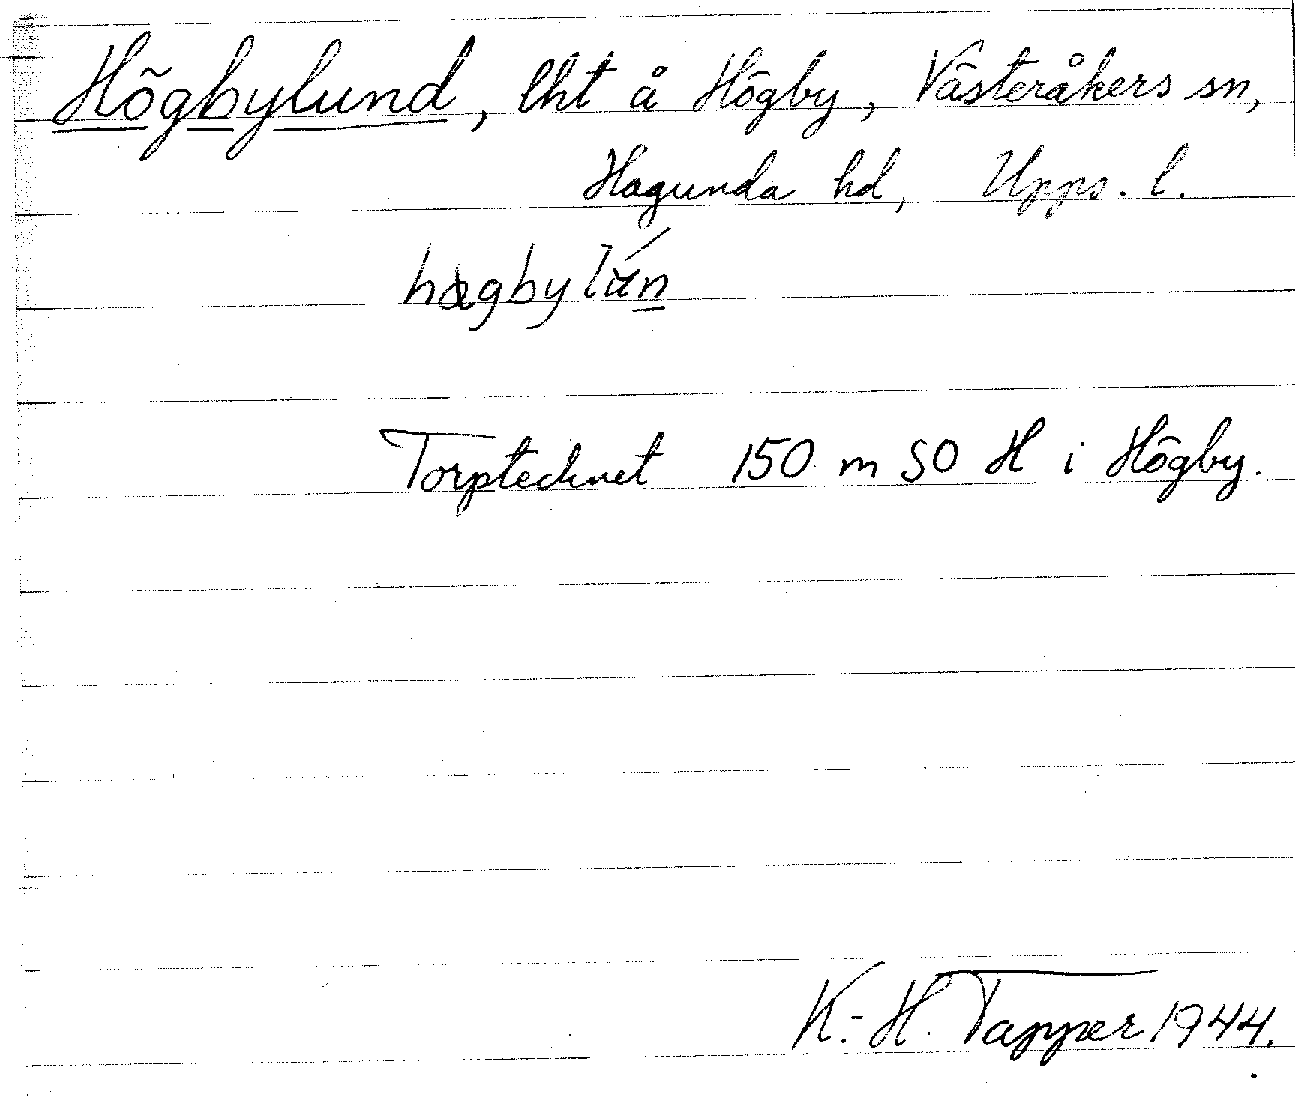 Högbylund, lht å Högby, Västeråkers sn,
Hagunda hd, Upps. l.
Torptecknet 150 m SO H i Högby.
K.-H. Tapper 1944.